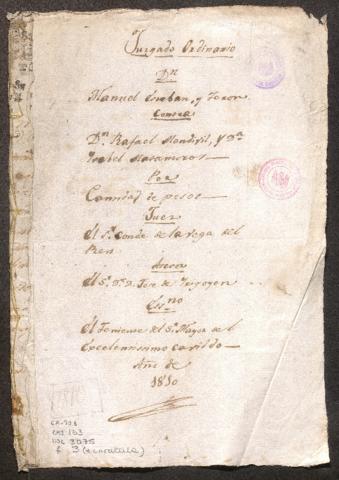 Juzgado Ordinario
Dn
Manuel Esteban, y Feron
Contra
Dn Rafael Mendivil, y Da
Isabel Matamoros
Por
Cantidad de pesos
Juez
El Sr. Conde de la Vega del
Ren
Asesor
El Sr. Dr. D. Jose de Yrigoyen
Esno
El Teniente del Sr. Mayor del
Excelentissimo Cavildo
Año de
1810
1810
CA-JO1
CAJ 163
DOC 3075
f. 3 (+ caratula)